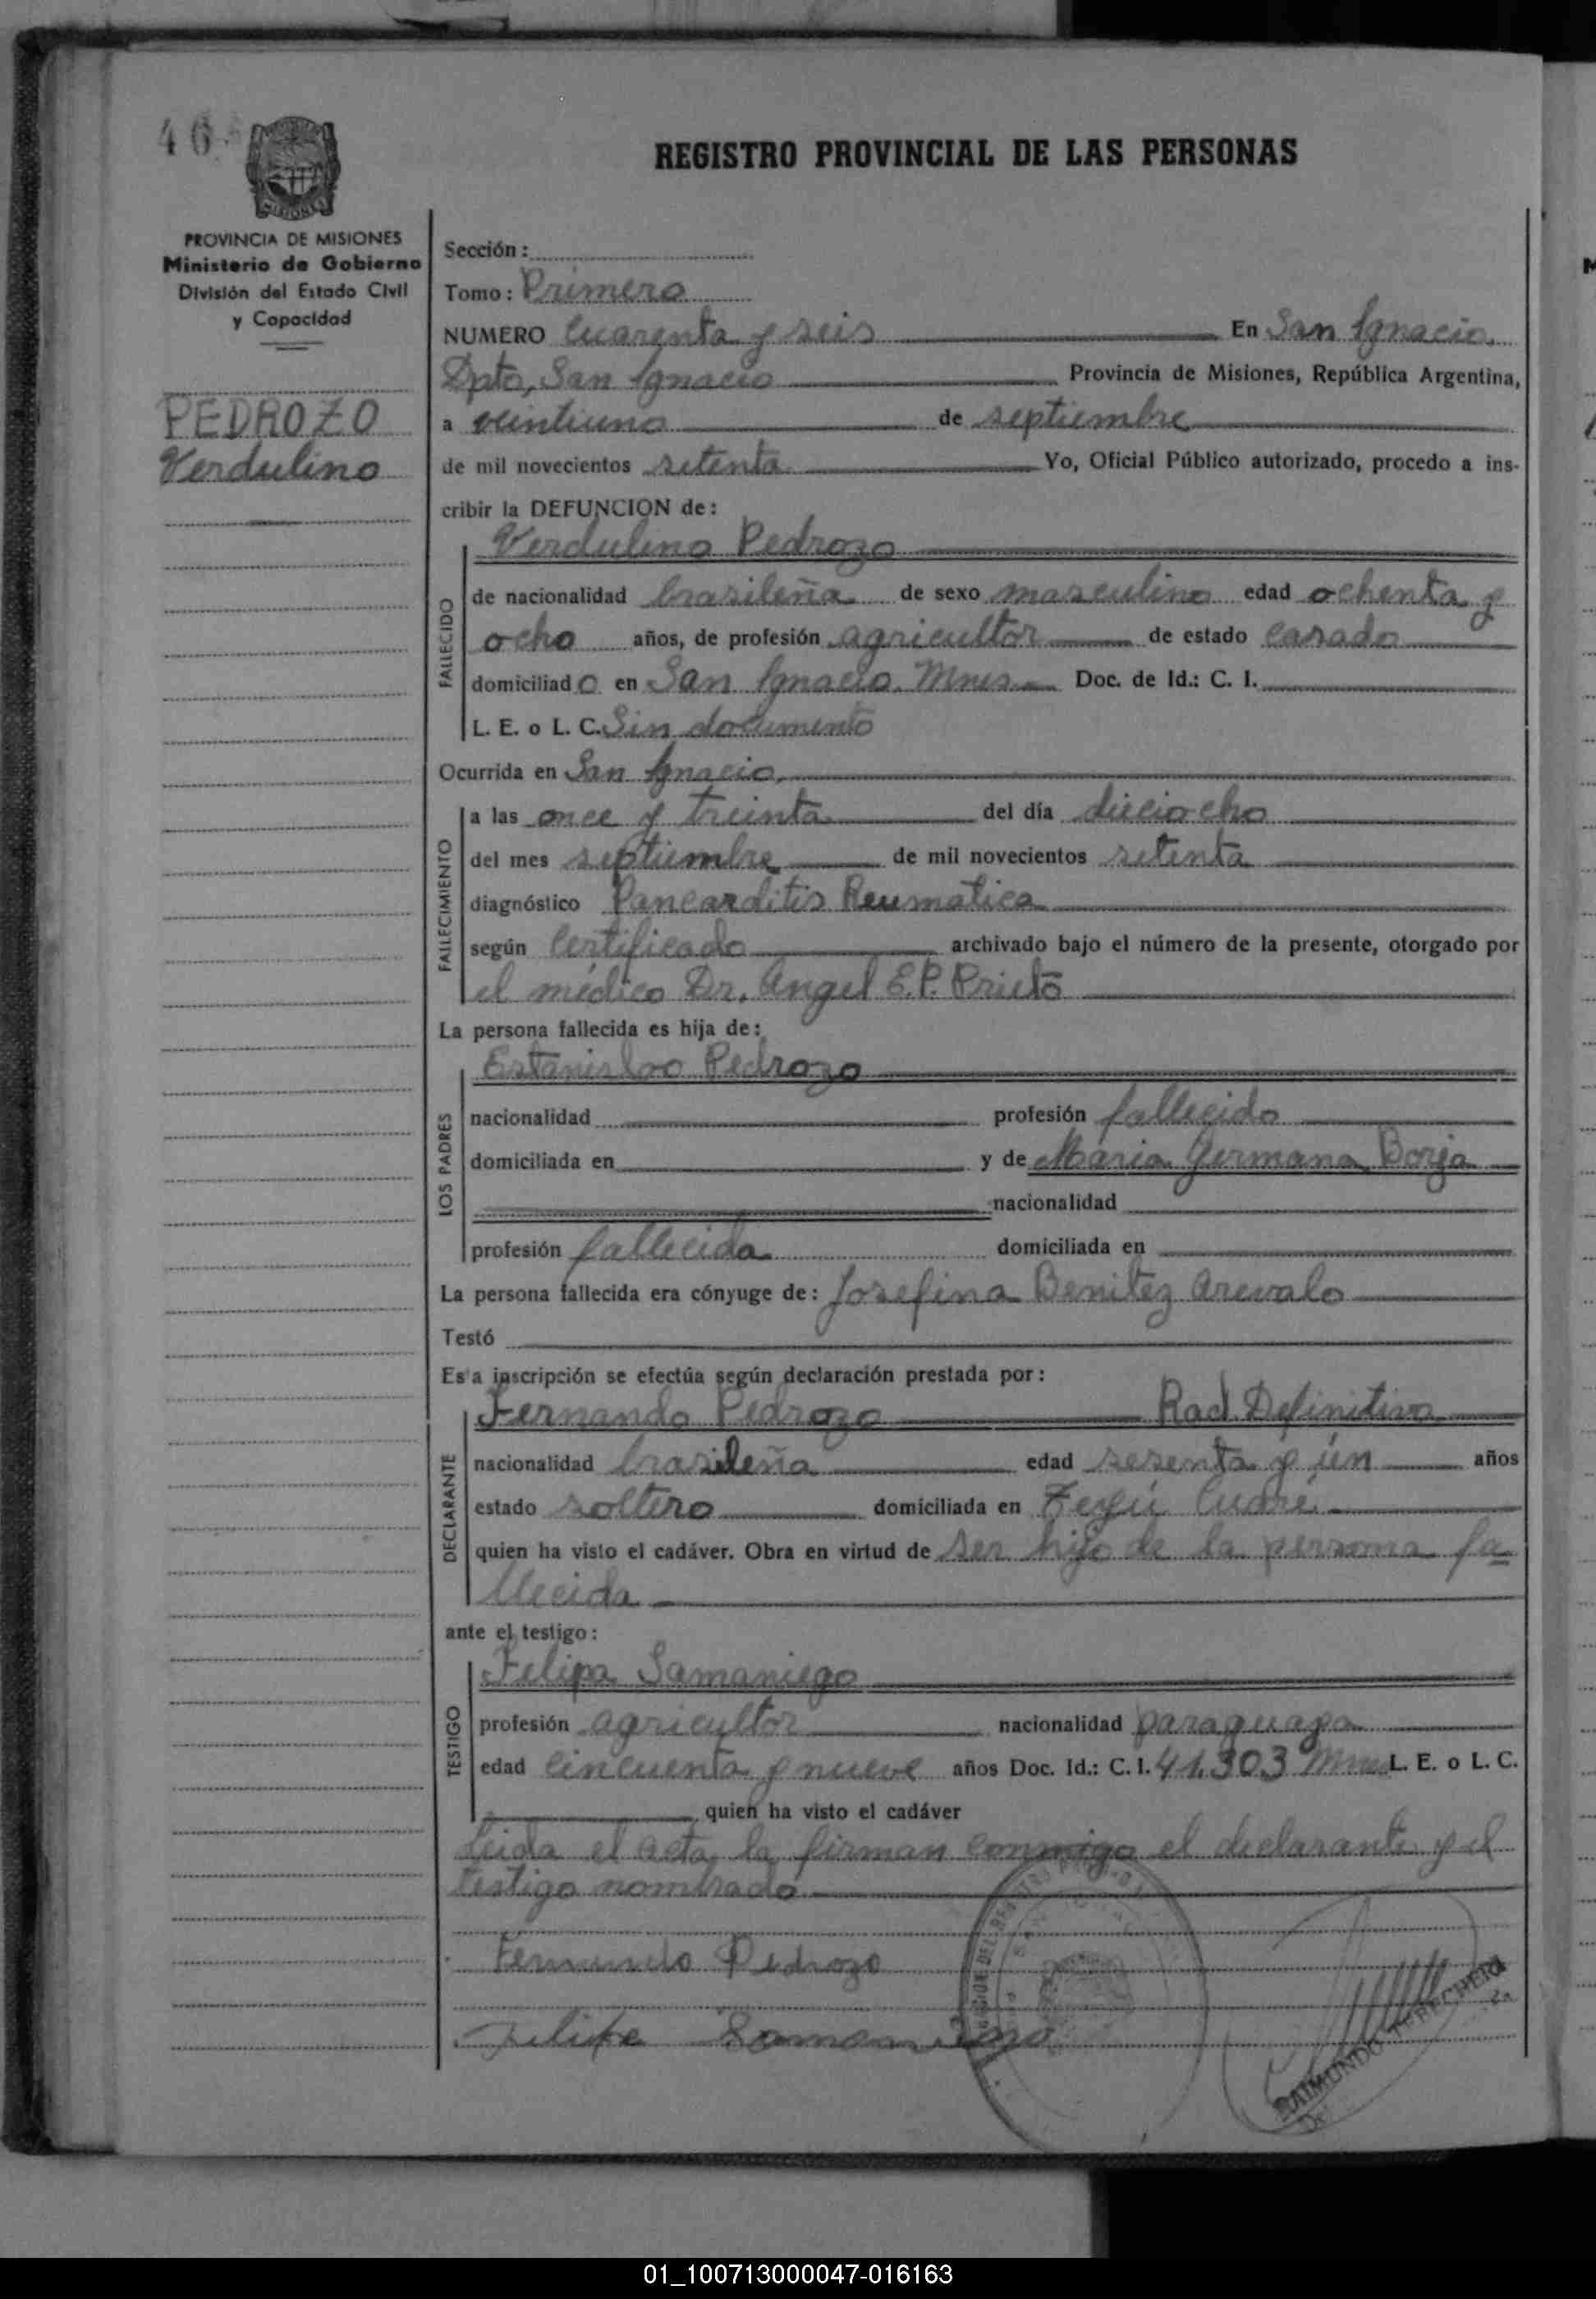 46
MISIONES
REGISTRO PROVINCIAL DE LAS PERSONAS
PROVINCIA DE MISIONES
Ministerio de Gobierno
División del Estado Civil
y Capacidad
PEDROZO
Verdulino
Sección:
Tomo: Primero
NUMERO Cuarenta y seis En San Ignacio,
Dpto, San Ignacio Provincia de Misiones, República Argentina,
a veintiuno de septiembre
de mil novecientos setenta Yo, Oficial Público autorizado, procedo a ins-
cribir la DEFUNCION de:
Verdulino Pedrozo
FALLECIDO
de nacionalidad brasileña de sexo masculino edad ochenta y
ocho años, de profesión agricultor de estado casado
domiciliado en San Ignacio. Mnes. Doc. de Id.: C. I.
L. E. o L. C. Sin documento
Ocurrida en San Ignacio,
FALLECIMIENTO
a las once y treinta del día dieciocho
del mes septiembre de mil novecientos setenta
diagnóstico Pancarditis Reumatica
según Certificado archivado bajo el número de la presente, otorgado por
el médico Dr. Angel E.P. Prieto
La persona fallecida es hija de:
LOS PADRES
Estanislao Pedrozo
nacionalidad profesión fallecido
domiciliada en y de Maria Germana Borja
nacionalidad
profesión fallecida domiciliada en
La persona fallecida era cónyuge de: Josefina Benitez Arevalo
Testó
Esta inscripción se efectúa según declaración prestada por:
DECLARANTE
Fernando Pedrozo Rad. Definitiva
nacionalidad brasileña edad sesenta y ún años
estado soltero domiciliada en Teyú Cuaré
quien ha visto el cadáver. Obra en virtud de ser hijo de la persona fa
llecida
ante el testigo:
TESTIGO
Felipa Samaniego
profesión agricultor nacionalidad paraguaya
edad cincuenta y nueve años Doc. Id.: C. I. 41.303 Mnes L. E. o L. C.
quien ha visto el cadáver
Leida el acta, la firman conmigo el declarante y el
testigo nombrado
Fernando Pedrozo
Felipe Samaniego
RAIMUNDO
01_100713000047-016163